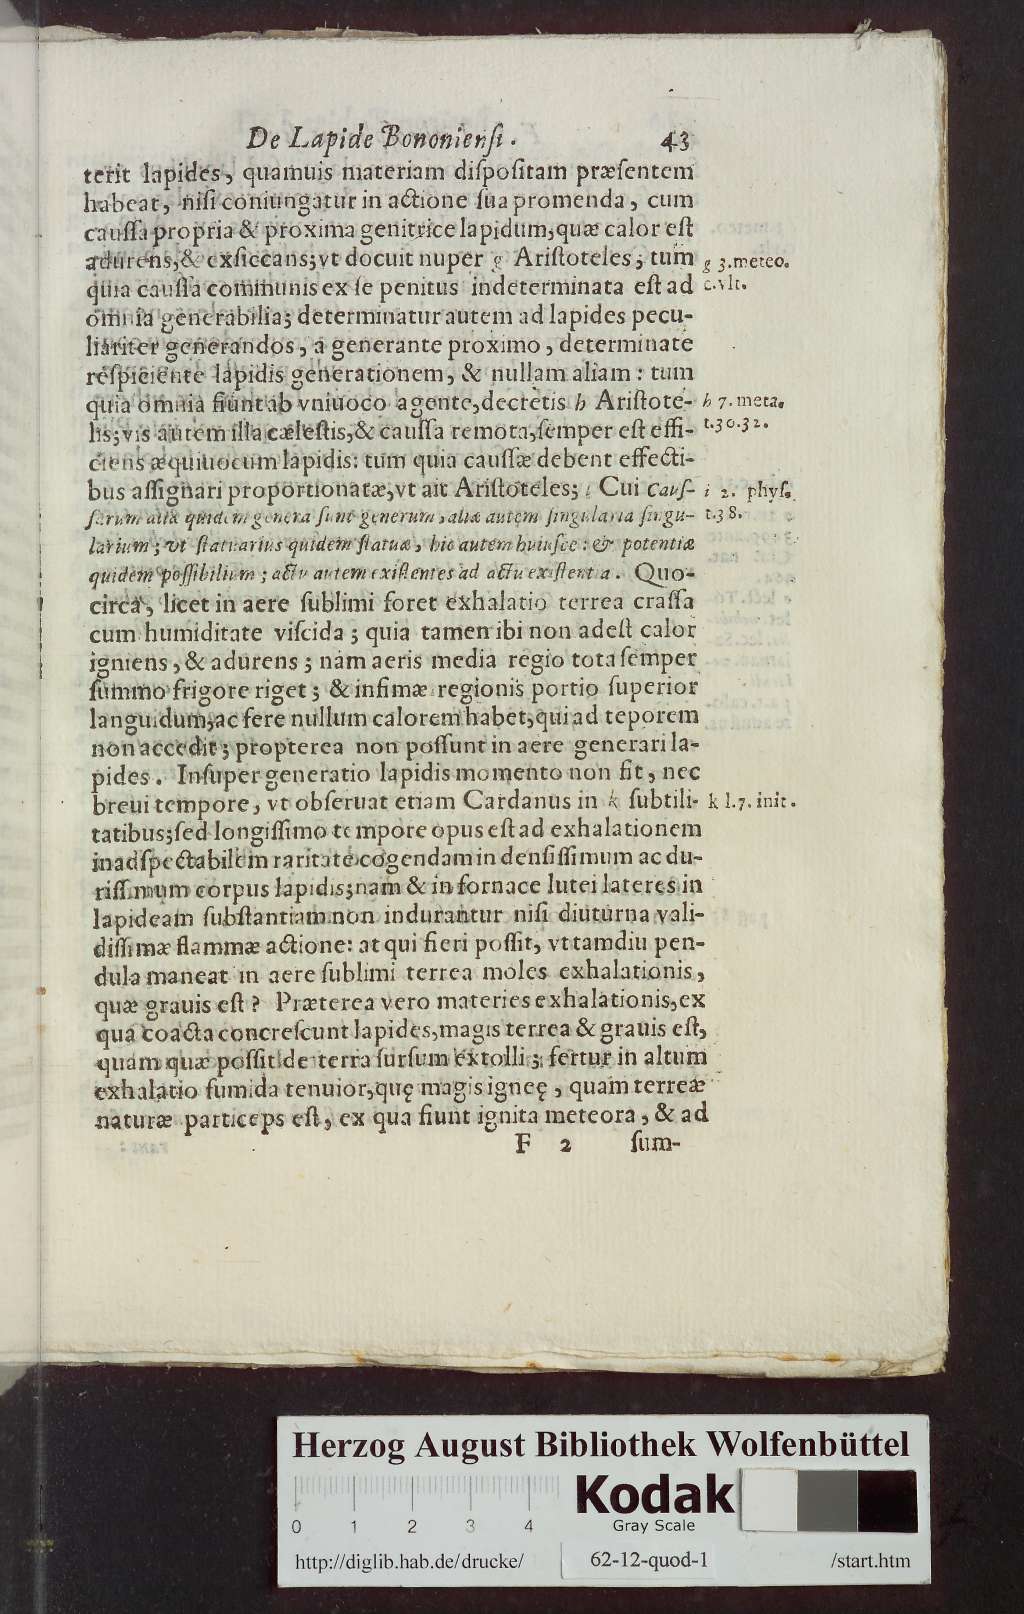 De Lapide Bononiensi. 43
terit lapides, quamuis materiam dispositam præsentem
habeat, nisi coniungatur in actione sua promenda, cum
caussa propria & proxima genitrice lapidum, quæ calor est
adurens, & exsiccans; vt docuit nuper g Aristoteles; tum
g 3. meteo.
quia caussa communis ex se penitus indeterminata est ad
c. vlt.
omnia generabilia; determinatur autem ad lapides pecu-
liariter generandos, a generante proximo, determinate
respiciente lapidis generationem, & nullam aliam: tum
quia omnia fiunt ab vniuoco agente, decretis h Aristote-
h 7. meta.
lis; vis autem illa cælestis, & caussa remota, semper est effi-
t. 30. 32.
ciens æquiuocum lapidis: tum quia caussæ debent effecti-
bus assignari proportionatæ, vt ait Aristoteles; i Cui Caus-
i 2. phys.
sarum aliæ quidem genera sunt generum, aliæ autem singularia singu-
t. 38.
larium; vt statuarius quidem statuæ, hic autem huiusce: & potentiæ
quidem possibilium; actu autem existentes ad actu existentia. Quo-
circa, licet in aere sublimi foret exhalatio terrea crassa
cum humiditate viscida; quia tamen ibi non adest calor
igniens, & adurens; nam aeris media regio tota semper
summo frigore riget; & infimæ regionis portio superior
languidum, ac fere nullum calorem habet, qui ad teporem
non accedit; propterea non possunt in aere generari la-
pides. Insuper generatio lapidis momento non fit, nec
breui tempore, vt obseruat etiam Cardanus in k subtili-
k l. 7. init.
tatibus; sed longissimo tempore opus est ad exhalationem
inadspectabilem raritate cogendam in densissimum ac du-
rissimum corpus lapidis; nam & in fornace lutei lateres in
lapideam substantiam non indurantur nisi diuturna vali-
dissimæ flammæ actione: at qui fieri possit, vt tamdiu pen-
dula maneat in aere sublimi terrea moles exhalationis,
quæ grauis est? Præterea vero materies exhalationis, ex
qua coacta concrescunt lapides, magis terrea & grauis est,
quam quæ possit de terra sursum extolli; fertur in altum
exhalatio fumida tenuior, quę magis igneę, quam terreæ
naturæ particeps est, ex qua fiunt ignita meteora, & ad
F 2 sum-
Herzog August Bibliothek Wolfenbüttel
Kodak
Gray Scale
0 1 2 3 4
http://diglib.hab.de/drucke/ 62-12-quod-1 /start.htm